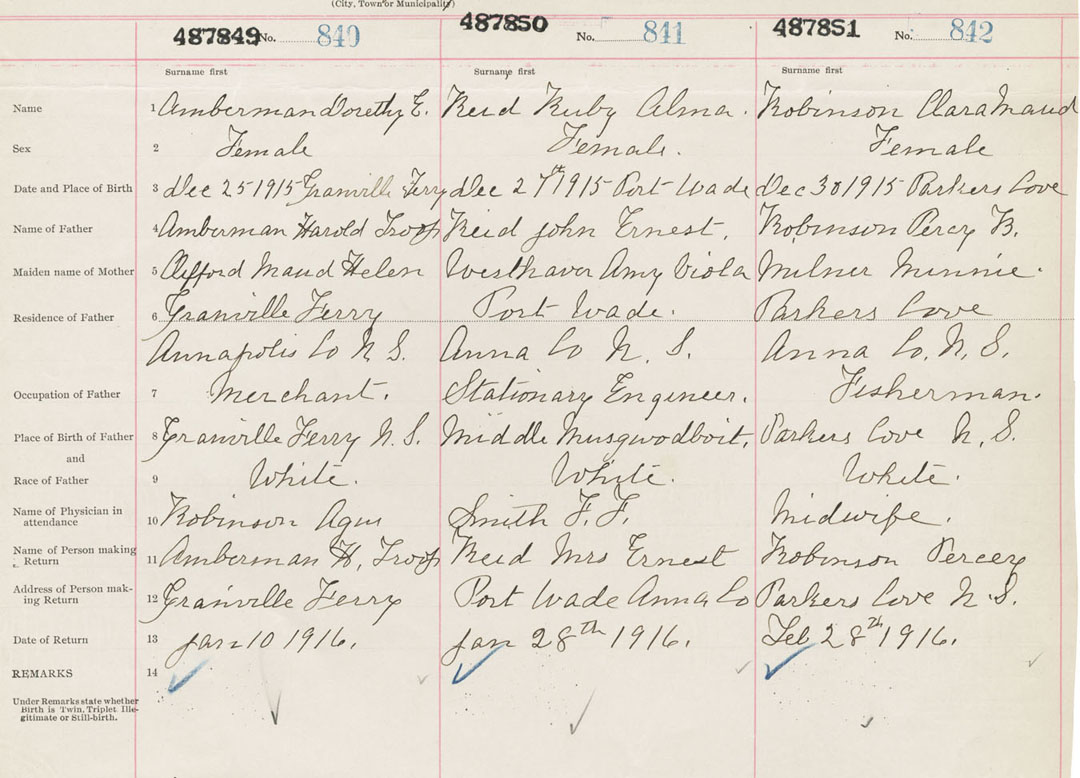 (City, Town or Municipality)
487849 No. 840 487850 No. 841 487851 No. 842
Surname first Surname first Surname first
Name 1 Amberman Dorothy E. Reid Ruby Alma. Robinson Clara Maud
Sex 2 Female Female. Female
Date and Place of Birth 3 Dec 25 1915 Granville Ferry Dec 27th 1915 Port Wade Dec 30 1915 Parkers Cove
Name of Father 4 Amberman Harold Troop Reid John Ernest. Robinson Percy B.
Maiden name of Mother 5 Clifford Maud Helen Westhaver Amy Viola Milner Minnie.
Residence of Father 6 Granville Ferry Port Wade. Parkers Cove
Annapolis Co N S. Anna Co N. S. Anna Co. N. S.
Occupation of Father 7 Merchant. Stationary Engineer. Fisherman.
Place of Birth of Father 8 Granville Ferry N. S. Middle Musqwodboit. Parkers Cove N. S.
and
Race of Father 9 White. White. White.
Name of Physician in attendance 10 Robinson Smith F. F. Midwife.
Name of Person making Return 11 Amberman H. Troop Reid Mrs Ernest Robinson Percey
Address of Person making Return 12 Granville Ferry Port Wade Anna Co Parkers Cove N. S.
Date of Return 13 Jan 10 1916. Jan 28th 1916. Feb 28th 1916.
REMARKS 14
Under Remarks state whether
Birth is Twin, Triplet Ille-
gitimate or Still-birth.